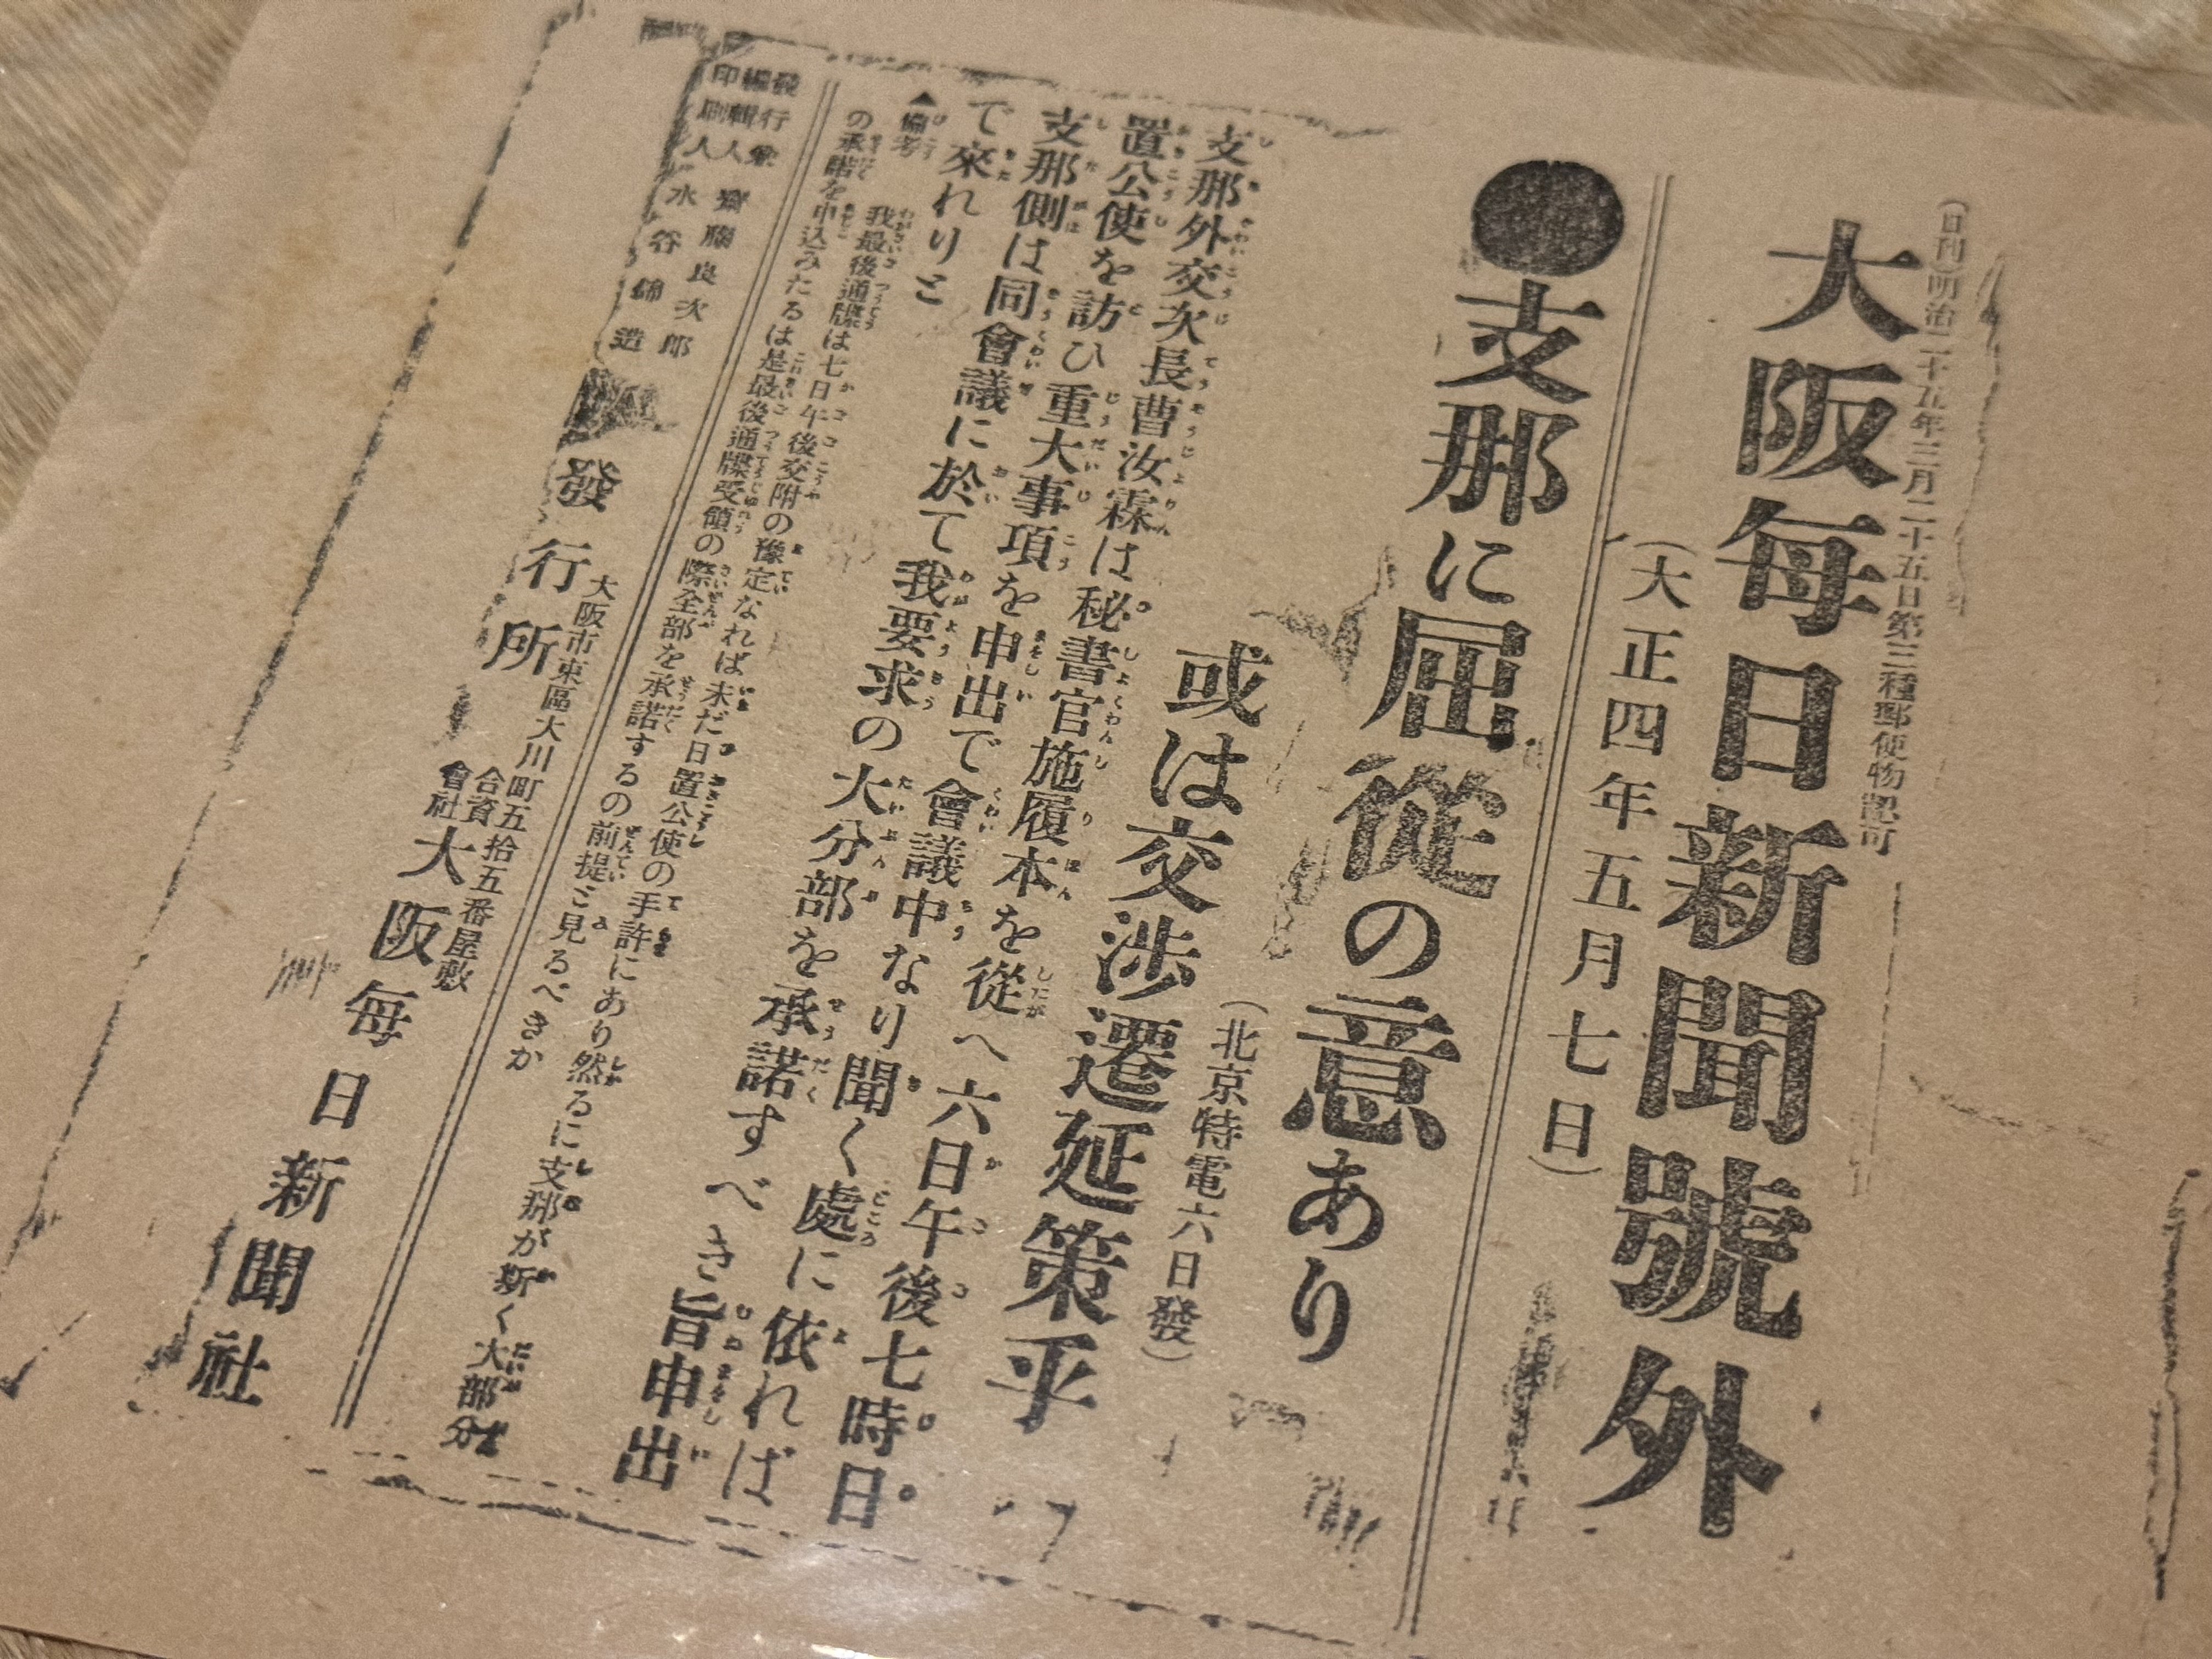 (日刊)明治二十五年三月二十五日第三種郵便物認可
大阪每日新聞號外
(大正四年五月七日)
●支那に屈從の意あり
或は交渉遷延策乎
(北京特電六日發)
支那外交次長曹汝霖は秘書官施履本を從へ六日午後七時日
置公使を訪ひ重大事項を申出で會議中なり聞く處に依れば
支那側は同會議に於て我要求の大分部を承諾すべき旨申出
で來れりと
▲備考 我最後通牒は七日午後交附の豫定なれば未だ日置公使の手許にあり然るに支那が斯く大部分
の承諾を申込みたるは是最後通牒受領の際全部を承諾するの前提と見るべきか
發行兼
編輯人 齋藤良次郎
印刷人 水谷錦造
發行所
大阪市東區大川町五拾五番屋敷
合資會社 大阪每日新聞社